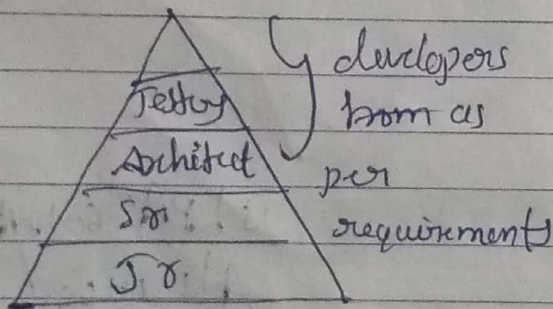 Testing
Architect
Sr.
Jr.
developers
from as
per
requirements